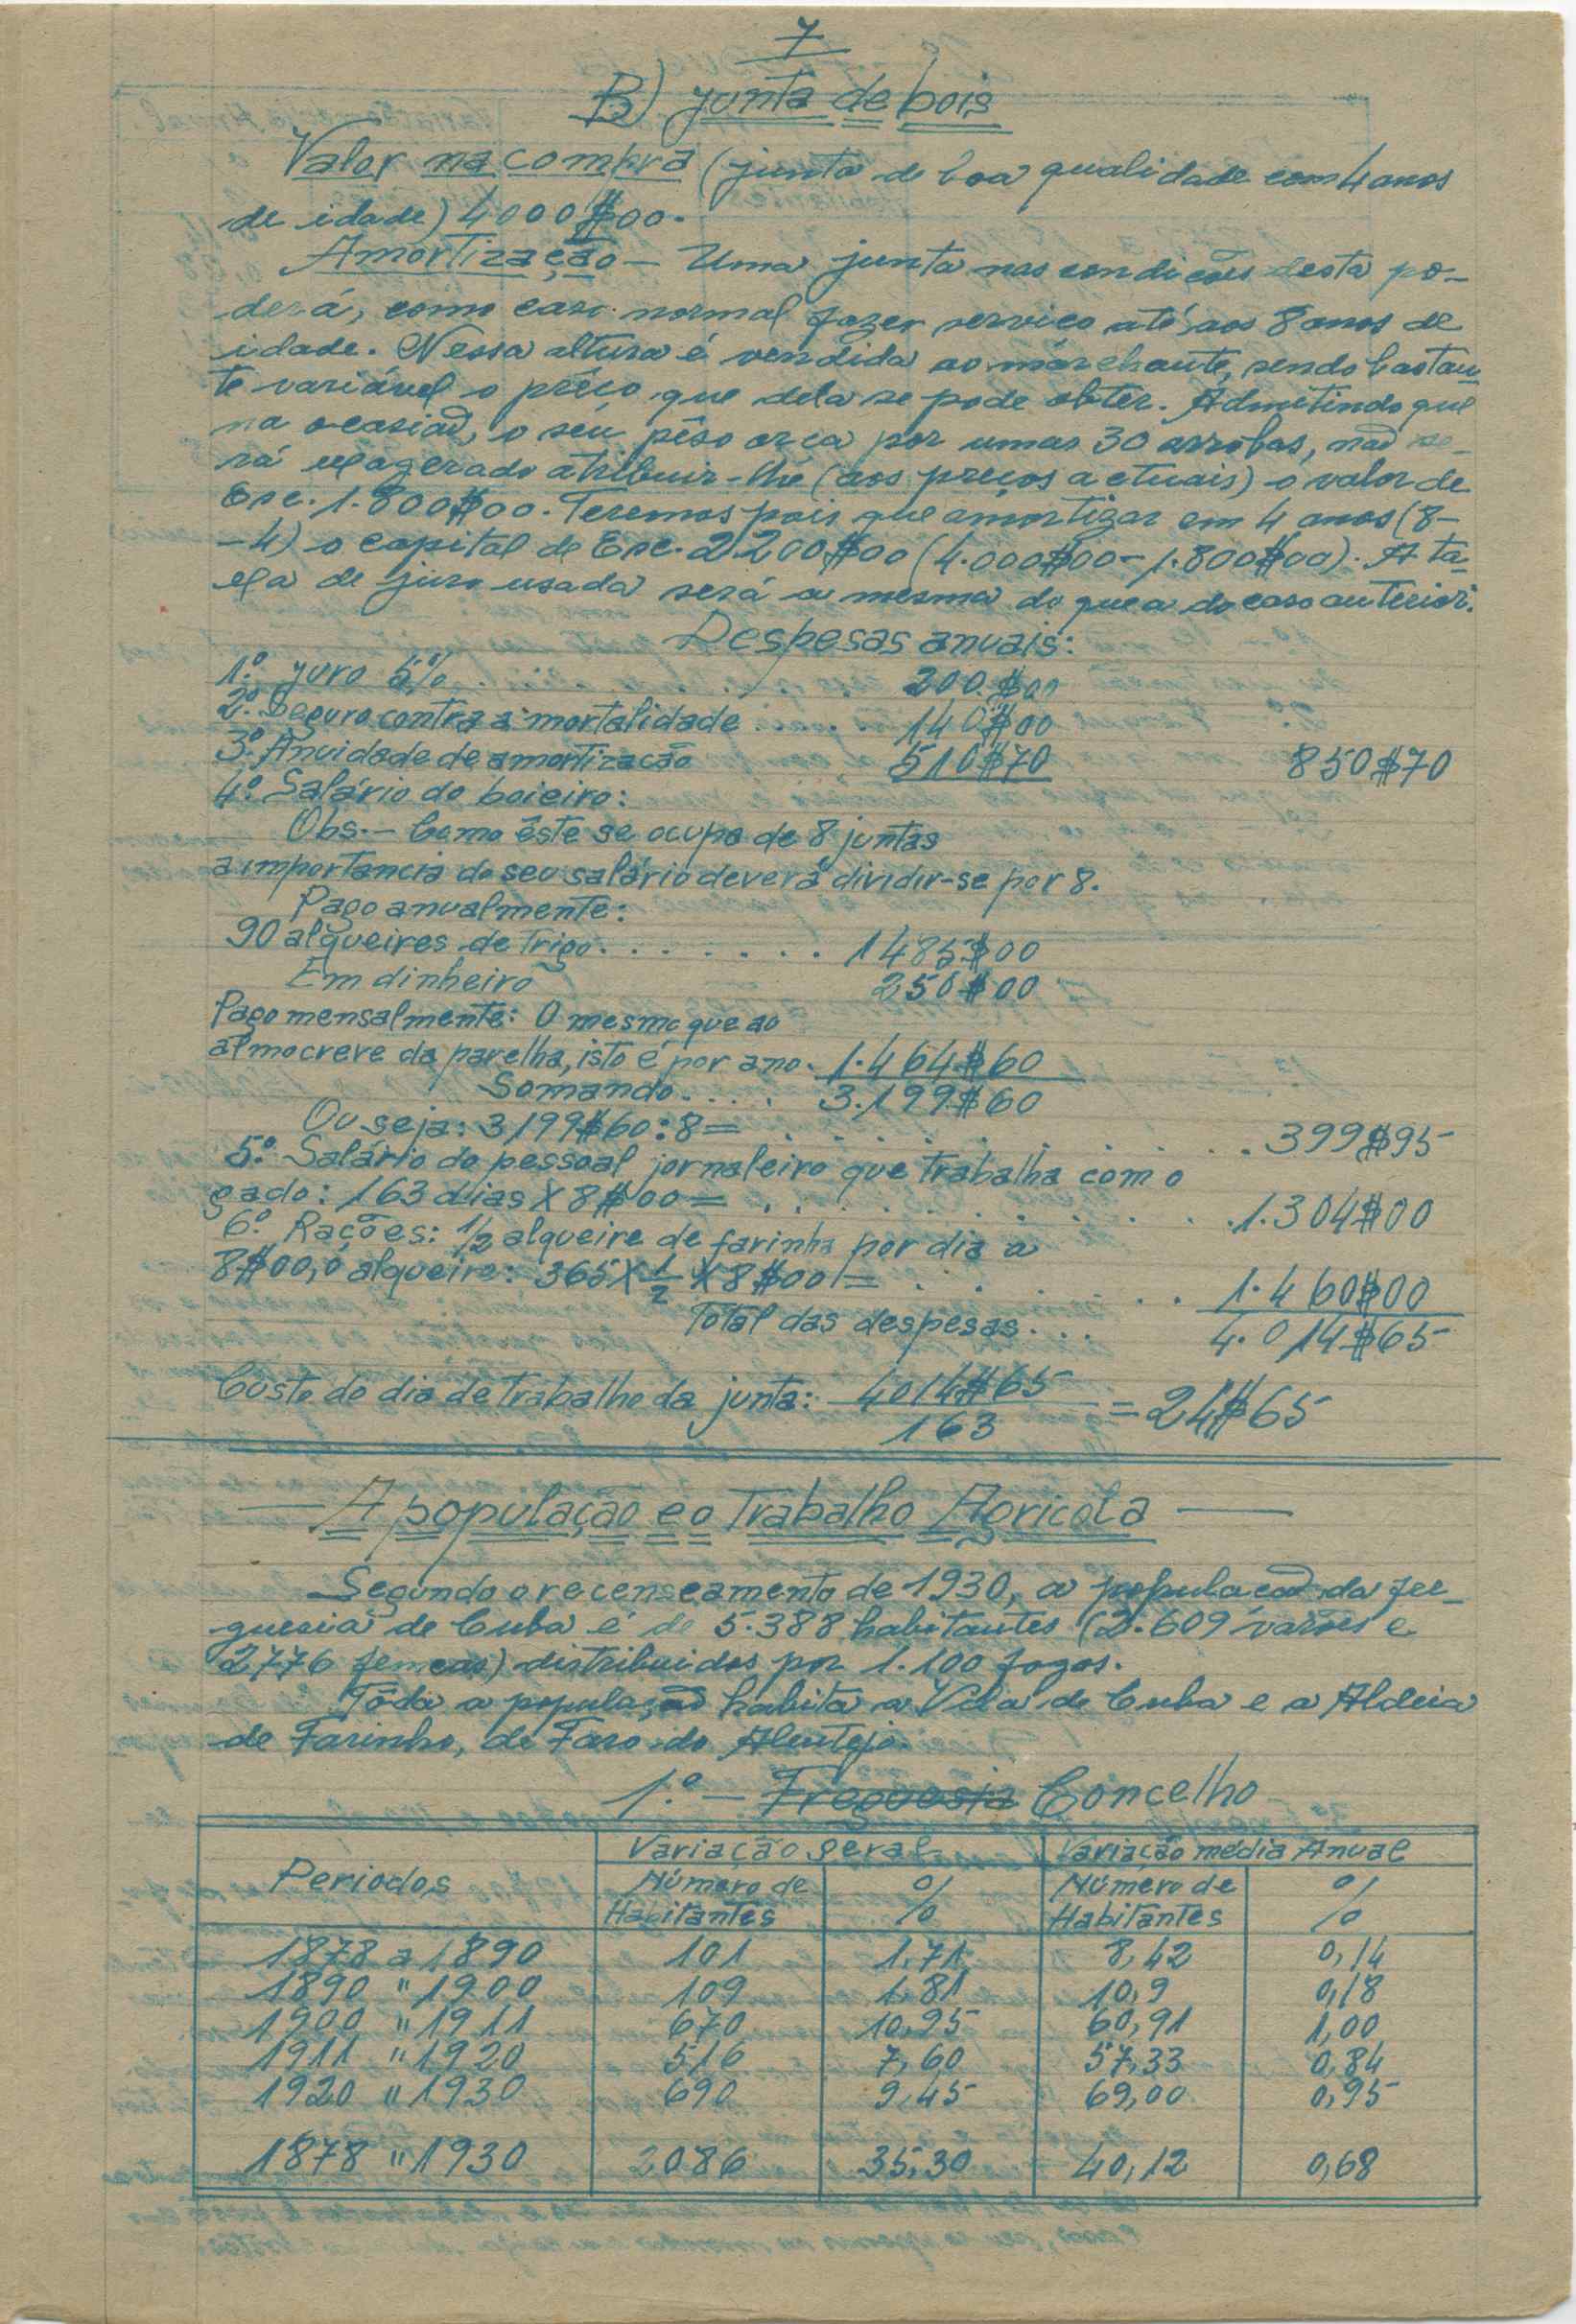 7
B) Junta de bois
Valor na compra (junta de boa qualidade com 4 anos
de idade) 4000$00.
Amortização — Uma junta nas condições desta po-
derá, como caso normal fazer serviço até aos 8 anos de
idade. Nessa altura é vendida ao marchante, sendo bastan-
te variável o prêço que dela se pode obter. Admitindo que
na ocasião, o seu pêso orça por umas 30 arrobas, não se-
rá exagerado atribuir-lhe (aos preços actuais) o valor de
Esc. 1.800$00. Teremos pois que amortizar em 4 anos (8-
-4) o capital de Esc. 2200$00 (4.000$00 - 1.800$00). A ta-
xa de juro usada será a mesma do que a do caso anterior.
Despesas anuais:
1.º Juro 5% . 200.$00
2.º Seguro contra a mortalidade .... 140$00
3.º Anuidade de amortização 510$70 850$70
4.º Salário do boieiro:
Obs. — Como êste se ocupa de 8 juntas
a importancia do seu salário deverá dividir-se por 8.
Pago anualmente:
90 alqueires de trigo. . . . . . . . 1485$00
Em dinheiro 250$00
Pago mensalmente: O mesmo que ao
almocreve da parelha, isto é por ano. 1.464$60
Somando..... 3.199$60
Ou seja: 3199$60:8= . . . . . . . . . . 399$95
5.º Salário do pessoal jornaleiro que trabalha com o
gado: 163 dias X 8$00 = . . . . . . . . . . 1.304$00
6.º Rações: 1/2 alqueire de farinha por dia a
8$00, o alqueire: 365 X 1/2 X 8$00 = . . . . . . 1.460$00
Total das despesas... 4.014$65
Custo do dia de trabalho da junta: 4014$65/163 = 24$65
— A população e o Trabalho Agricola —
Segundo o recenseamento de 1930, a população da fre-
guesia de Cuba é de 5.388 habitantes (2.609 varões e
2776 femeas) distribuidos por 1.100 fogos.
Tôda a população habita a Vila de Cuba e a Aldeia
de Farinho, de Faro do Alentejo.
1.º — Freguesia Concelho
Periodos Variação geral Variação média Anual
Número de Habitantes % Número de Habitantes %
1878 a 1890 101 1,71 8,42 0,14
1890 " 1900 109 1,81 10,9 0,18
1900 " 1911 670 10,95 60,91 1,00
1911 " 1920 516 7,60 57,33 0,84
1920 " 1930 690 9,45 69,00 0,95
1878 " 1930 2086 35,30 40,12 0,68